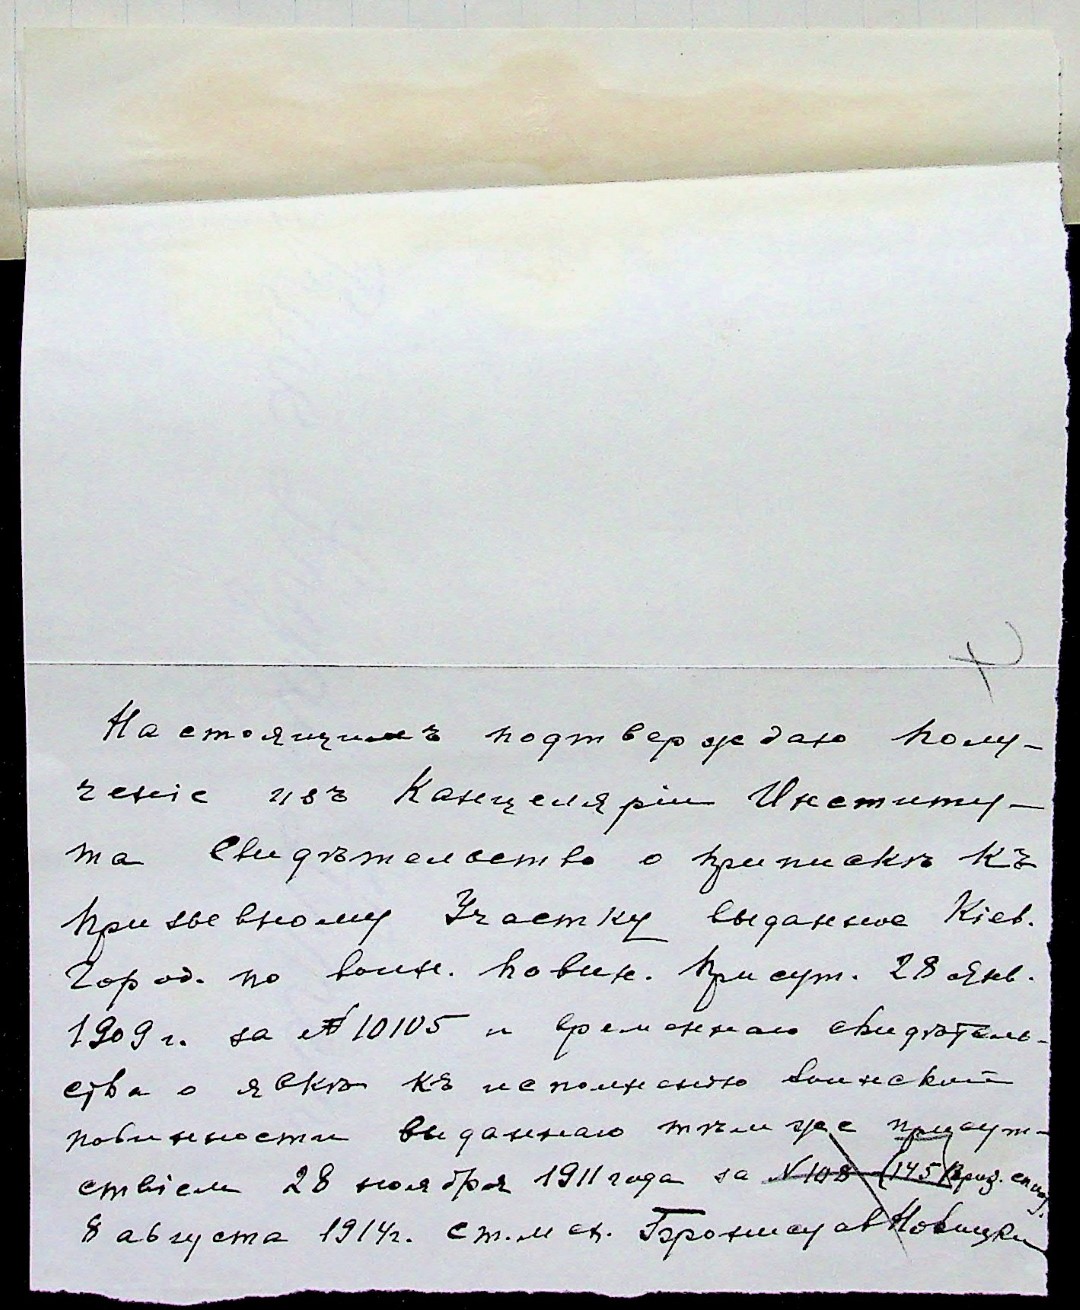 Настоящимъ подтверждаю полу-
ченіе изъ Канцеляріи Институ-
та Свидѣтельство о припискѣ къ
призывному Участку выданное Кіев.
Город. по воин. повин. присут. 28 Янв.
1909 г. за № 10105 и временнаго свидѣтель-
ства о явкѣ къ исполненію воинской
повинности выданнаго тѣмъ же присут-
ствіем 28 ноября 1911 года за № 108 (145 приз. спис.
8 августа 1914 г. ст. мен. Брониславъ Новицки